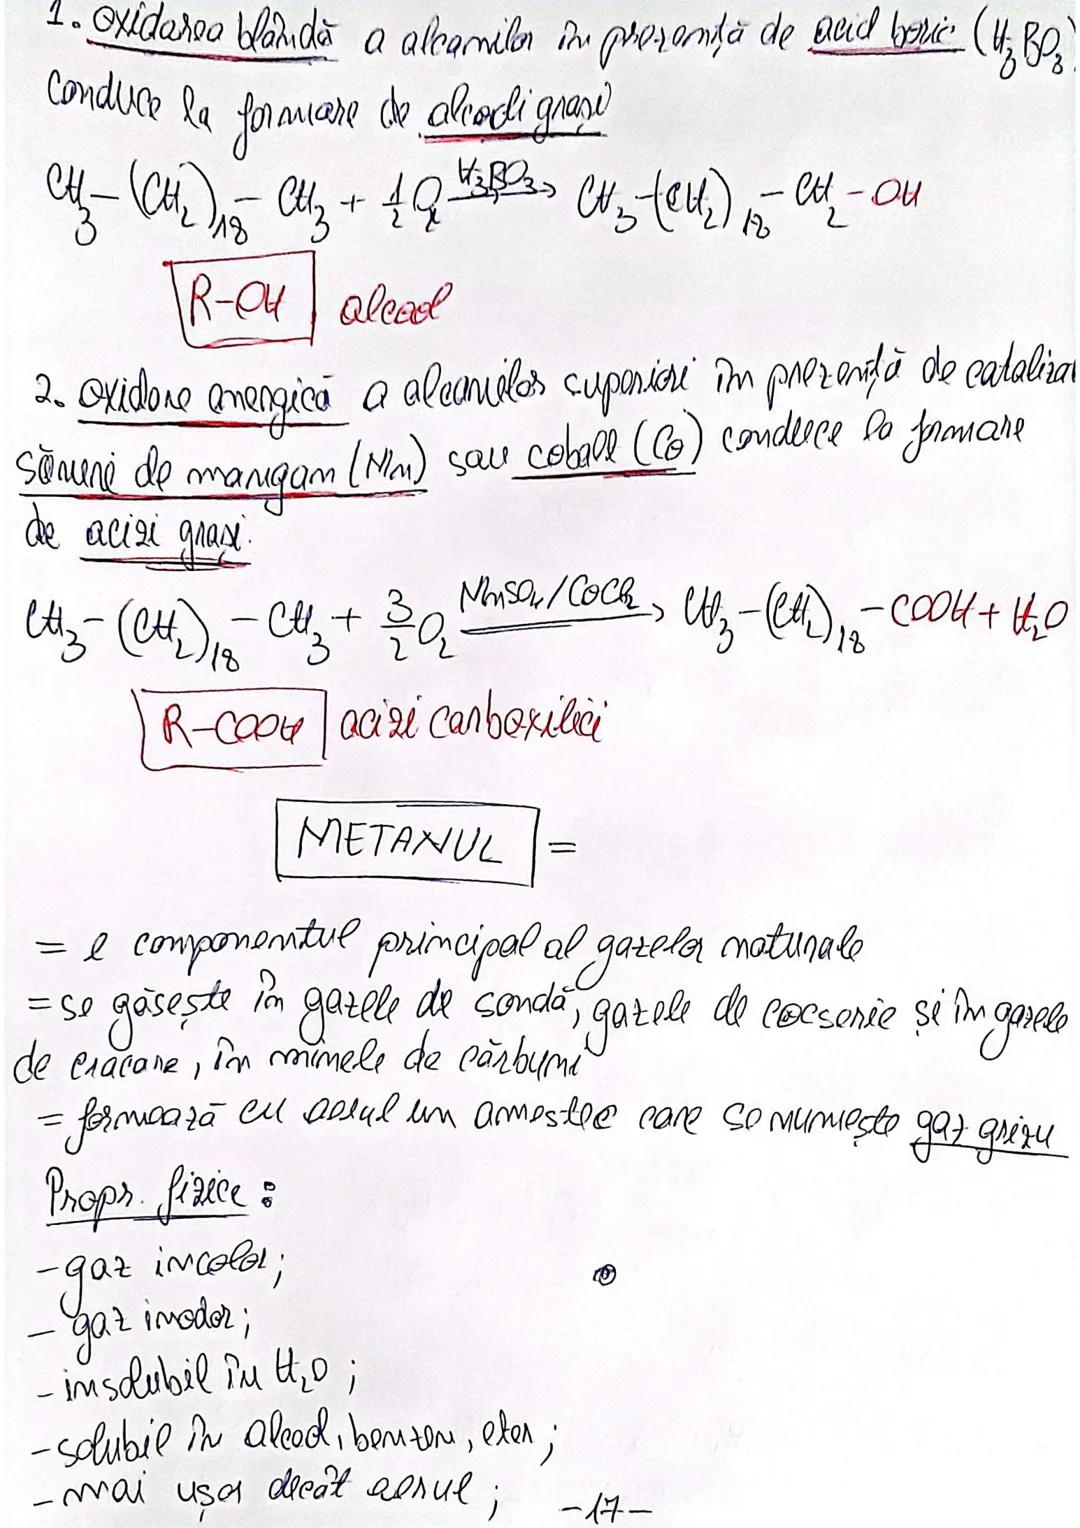 1. Oxidarea blândă a alcanilor în prezență de acid boric (H₃BO₃)
Conduce la formare de alcooli grași
CH₃-(CH₂)₁₈-CH₃ + 1/2 O₂ H₃BO₃→ CH₃-(CH₂)₁₈-CH₂-OH
R-OH alcool
2. Oxidare energică a alcanilor superiori în prezență de cataliza
săruri de mangan (Mn) sau cobalt (Co) conduce la formare
de acizi grași.
CH₃-(CH₂)₁₈-CH₃ + 3/2 O₂ MnSO₄/CoCl₂→ CH₃-(CH₂)₁₈-COOH + H₂O
R-COOH acizi carboxilici
METANUL =
= e componentul principal al gazelor naturale
= se găsește în gazele de sondă, gazele de cocserie și în gazele
de cracare, în minele de cărbuni
= formează cu aerul un amestec care se numește gaz grizu
Propr. fizice :
- gaz incolor;
- gaz inodor;
- insolubil în H₂O ;
- solubil în alcool, benzen, eter ;
- mai ușor decât aerul ;
-17-